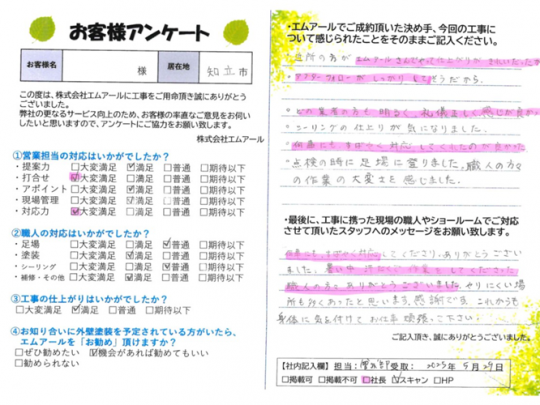 お客様アンケート
お客様名
様
居住地
知立市
この度は、株式会社エムアールに工事をご用命頂き誠にありがとう
ございました。
弊社の更なるサービス向上のため、お客様の率直なご意見をお伺い
したいと思いますので、アンケートにご協力をお願い致します。
株式会社エムアール
①営業担当の対応はいかがでしたか?
・提案力 □大変満足 ☑満足 □普通 □期待以下
・打合せ ☑大変満足 □満足 □普通 □期待以下
・アポイント □大変満足 ☑満足 □普通 □期待以下
・現場管理 □大変満足 ☑満足 □普通 □期待以下
・対応力 ☑大変満足 □満足 □普通 □期待以下
②職人の対応はいかがでしたか?
・足場 □大変満足 □満足 ☑普通 □期待以下
・塗装 □大変満足 ☑満足 □普通 □期待以下
・シーリング □大変満足 □満足 ☑普通 □期待以下
・補修・その他 □大変満足 ☑満足 □普通 □期待以下
③工事の仕上がりはいかがでしたか?
□大変満足 ☑満足 □普通 □期待以下
④お知り合いに外壁塗装を予定されている方がいたら、
エムアールを「お勧め」頂けますか?
□ぜひ勧めたい ☑機会があれば勧めてもいい
□勧められない
・エムアールでご成約頂いた決め手、今回の工事に
ついて感じられたことをそのままご記入ください。
・近所の方がエムアールさんで
・アフターフォローがしっかりしてそうだから。
・どの業者の方も明るく、礼儀正しく感じが良かった
・シーリングの仕上りが気になりました。
・何事にもすばやく対応してくれたのが良かった
・点検の時に足場に登りました。職人の方々
の作業の大変さを感じました。
・最後に、工事に携った現場の職人やショールームでご対応
させて頂いたスタッフへのメッセージをお願い致します。
何事にもすばやく対応してくださり、ありがとうござい
ました。暑い中 作業してくださった
職人の方々ありがとうございました。やりにくい場
所も多くあったと思います。感謝です。これからも
身体に気を付けてお仕事頑張って下さい。
ご記入頂き、誠にありがとうございました。
【社内記入欄】担当: 受取: 2025年 5月 29日
□掲載可 □掲載不可 □社長 ☑スキャン □HP